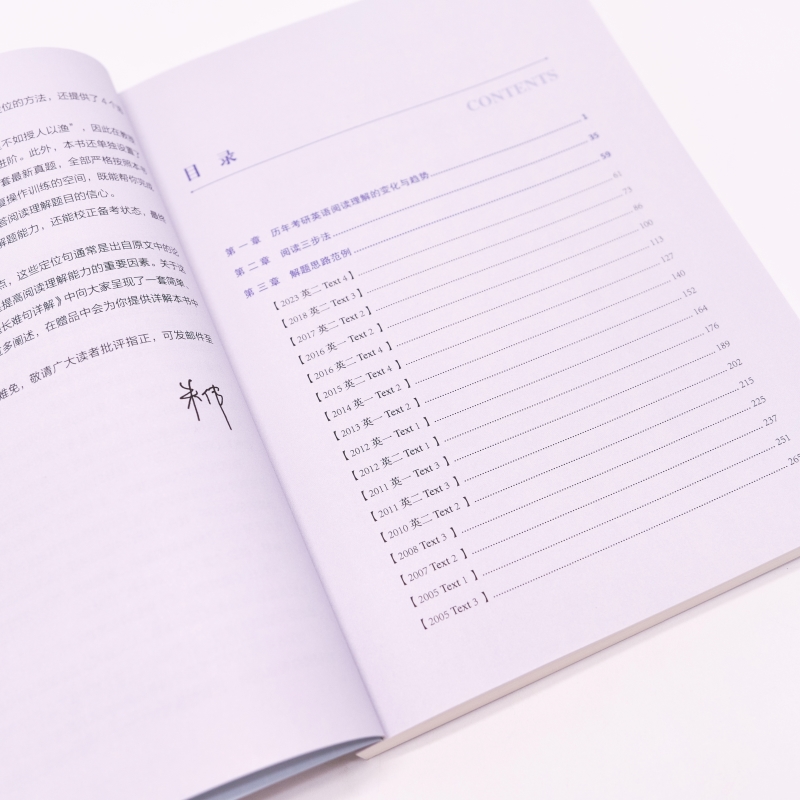 定位的方法，还提供了4个
不如授人以渔”，因此在教
进阶。此外，本书还单独设置了
套最新真题，全部严格按照本书
复操作训练的空间，既能帮你完成
答阅读理解题目的信心。
解题能力，还能校正备考状态，最终
点，这些定位句通常是出自原文中的论
提高阅读理解能力的重要因素。关于这
长难句详解》中向大家呈现了一套简单、
多阐述，在赠品中会为你提供详解本书中
难免，敬请广大读者批评指正，可发邮件至
朱伟
CONTENTS
目 录
第一章 历年考研英语阅读理解的变化与趋势 1
第二章 阅读三步法 35
第三章 解题思路范例 59
【2023 英二 Text 4】 61
【2018 英二 Text 3】 73
【2017 英二 Text 2】 86
【2016 英一 Text 2】 100
【2016 英二 Text 4】 113
【2015 英二 Text 4】 127
【2014 英一 Text 2】 140
【2013 英一 Text 2】 152
【2012 英一 Text 1】 164
【2012 英二 Text 1】 176
【2011 英一 Text 3】 189
【2011 英二 Text 3】 202
【2010 英二 Text 2】 215
【2008 Text 3】 225
【2007 Text 2】 237
【2005 Text 1】 251
【2005 Text 3】 265